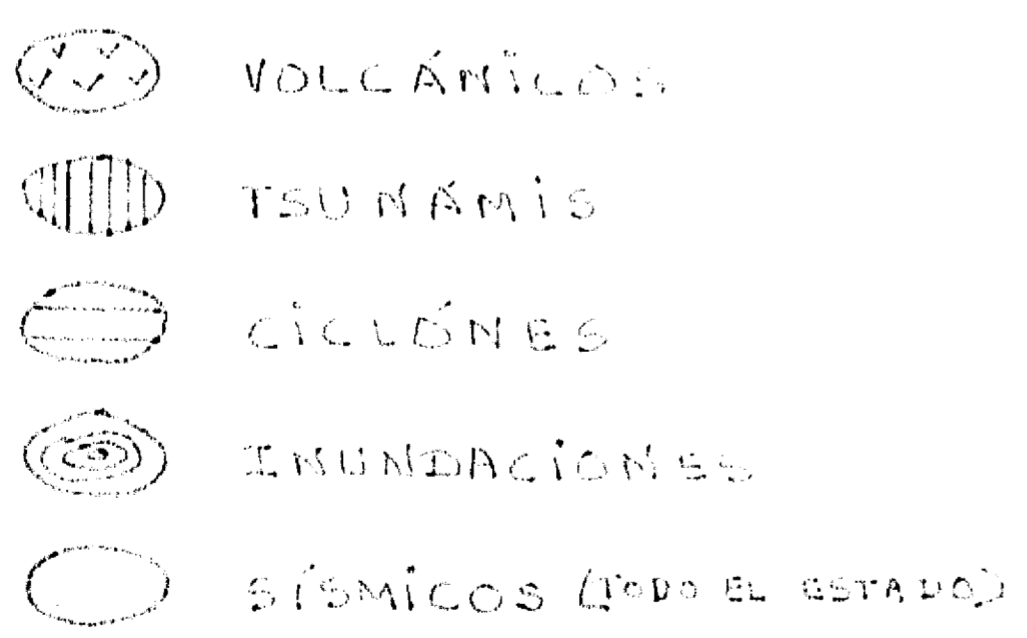 VOLCÁNiCOS
TSUNÁMiS
CiCLÓNES
INUNDACiONES
SíSMiCOS (TODO EL ESTADO)